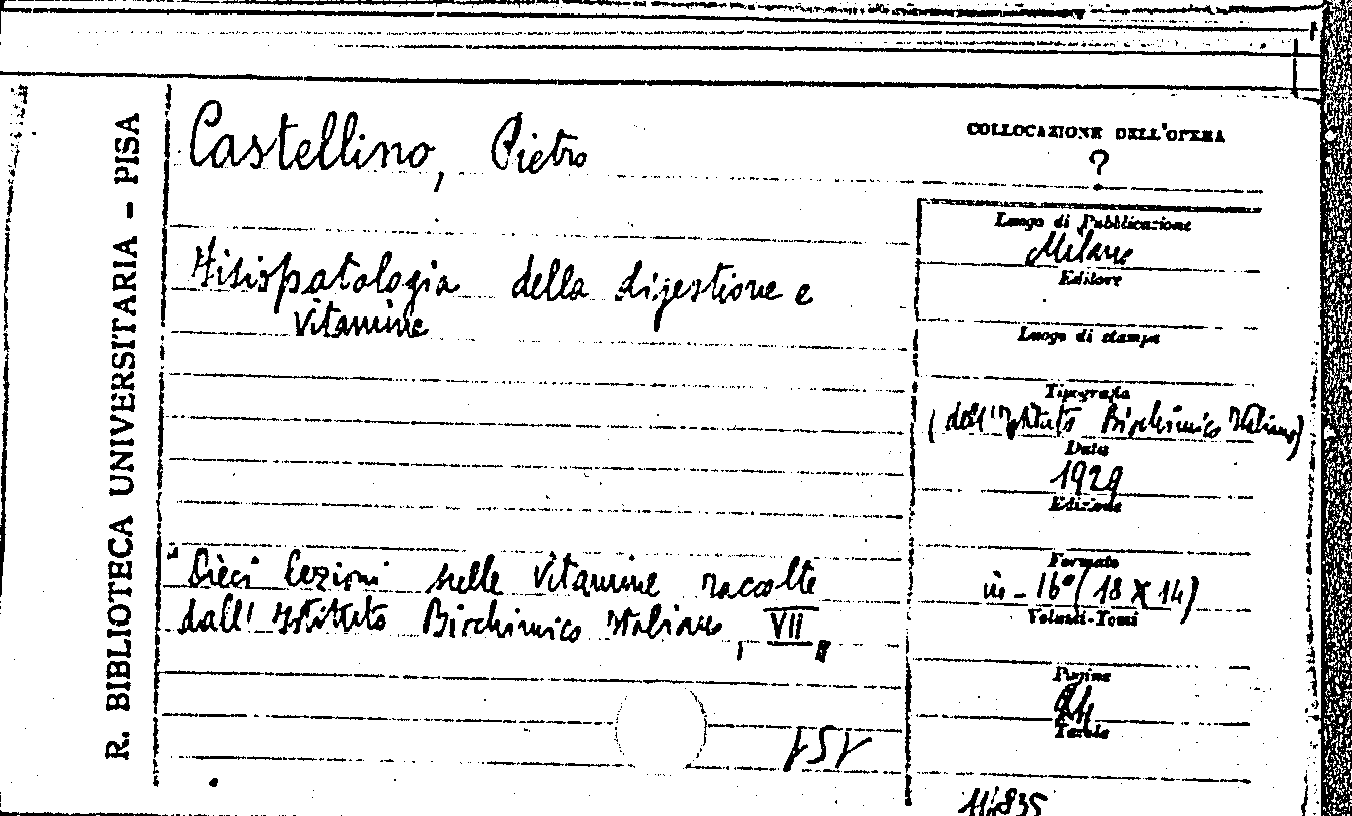 R. BIBLIOTECA UNIVERSITARIA - PISA
Castellino, Pietro
Fisiopatologia della digestione e
vitamine
"Dieci lezioni sulle vitamine raccolte
dall'Istituto Biochimico Italiano, VII"
COLLOCAZIONE DELL'OPERA
?
Luogo di Pubblicazione
Milano
Editore
Luogo di stampa
Tipografia
(dall'Istituto Biochimico Italiano)
Data
1929
Edizione
Formato
in-16°(18 X 14)
Volumi-Tomi
Pagine
24
Tavole